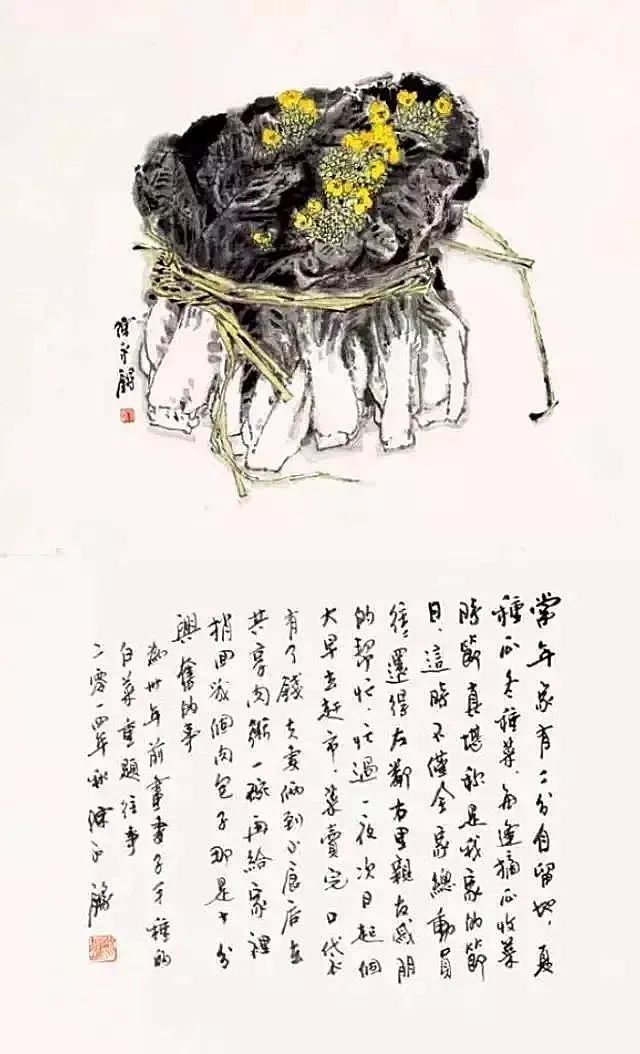 陳永鏘
當年家有二分自留地，夏
種瓜冬種菜，每逢摘瓜收菜
時節真堪称是我家的節
日，這時不僅全家總動員
往往還得左鄰右里親友或朋
的幫忙，忙過一夜次日起個
大早去赶市，菜賣完口袋
有了錢夫妻倆到小食店去
共享肉粥一碗再給家裡
捎回幾個肉包子那是十分
興奮的事
為卅年前畫妻子手種的
白菜重題往事
二零一四年秋陳永鏘